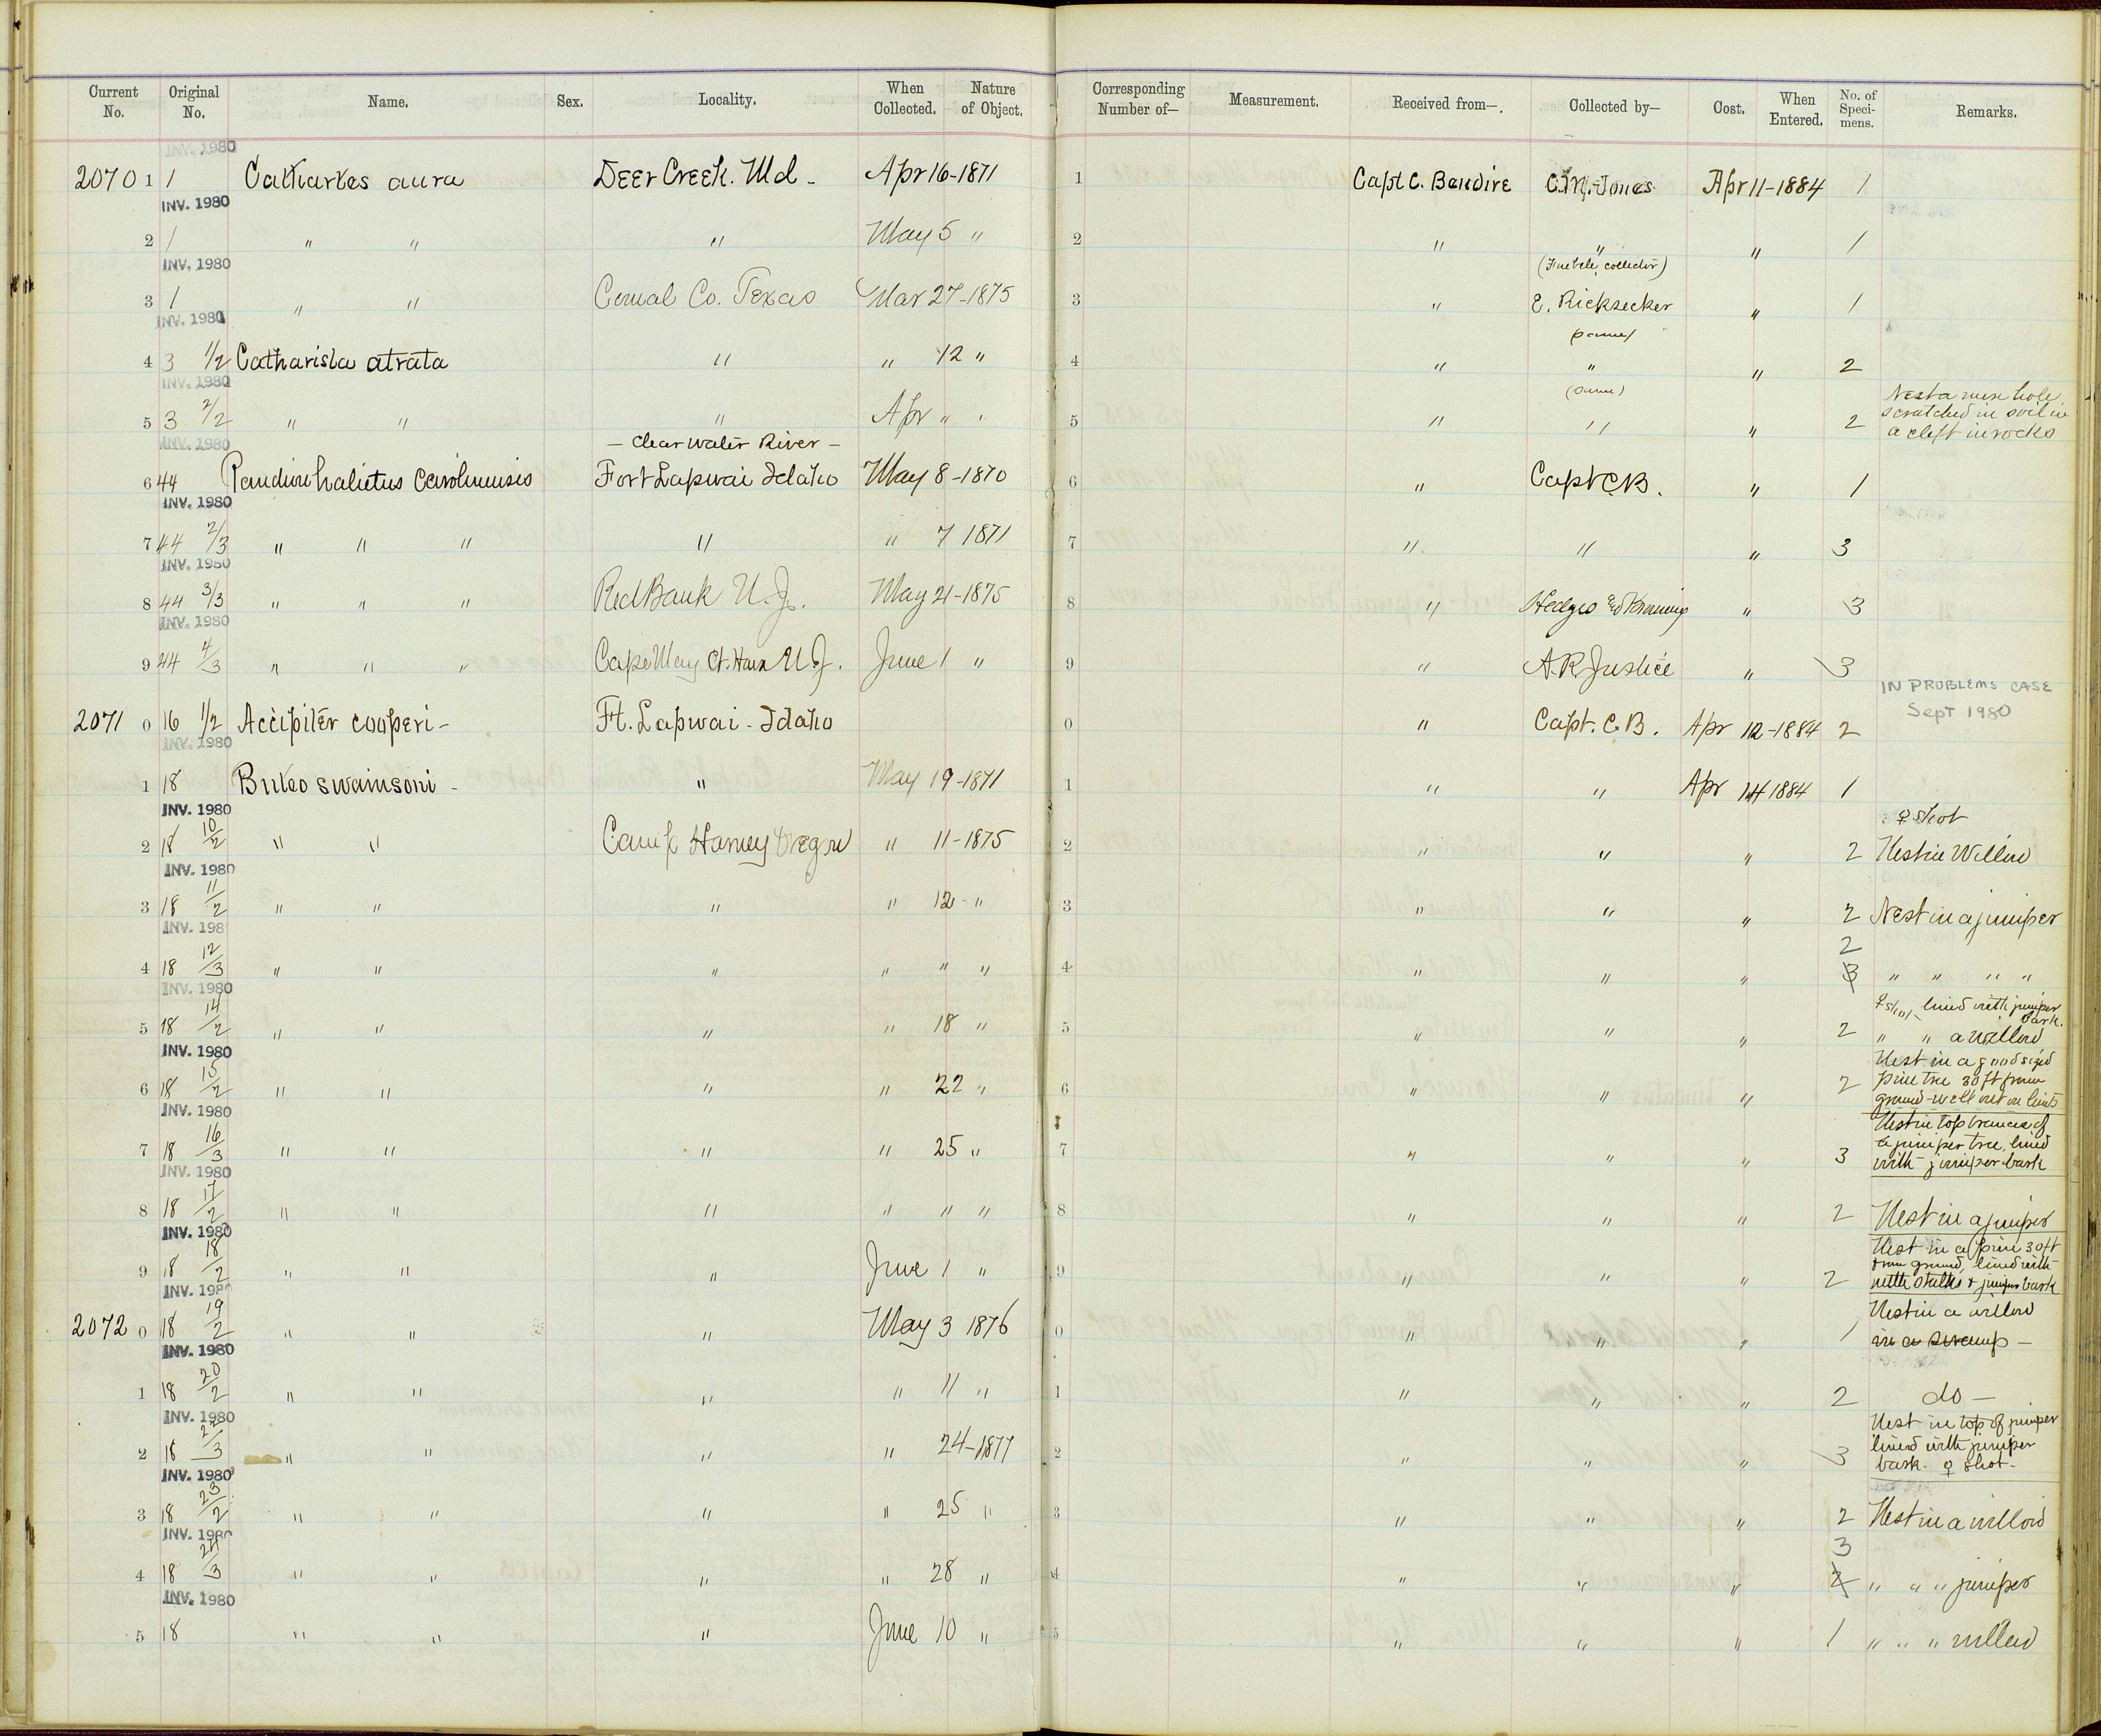 Current No. Original No. Name. Sex. Locality. When Collected. Nature of Object. Corresponding Number of— Measurement. Received from— Collected by— Cost. When Entered. No. of Specimens. Remarks.
INV. 1980
2070 1 1 Cathartes aura Deer Creek. Md - Apr 16-1871 1 Capt C. Bendire C.M. Jones Apr 11-1884 1
INV. 1980
2 1 " " " May 5 " 2 " " " 1
INV. 1980 collector)
3 1 " " Comal Co. Texas Mar 27-1875 3 " E. Ricksecker " 1
INV. 1980
4 3 1/2 Catharista atrata " " 12 " 4 " " " 2
INV. 1980 (same)
Nest a mere hole
5 3 2/2 " " " Apr " " 5 " " " 2 scratched in soil in
a cleft in rocks
INV. 1980 — Clearwater River —
6 44 Pandion haliaetus carolinensis Fort Lapwai Idaho May 8-1870 6 " Capt C.B. " 1
INV. 1980
7 44 2/3 " " " " " 7 1871 7 " " " 3
INV. 1980
8 44 3/3 " " " Red Bank N. J. May 21-1875 8 " Hedges " 3
INV. 1980
9 44 4/3 " " " Cape May Ct. House N. J. June 1 " 9 " A.R. Justice " 3
IN PROBLEMS CASE
Sept 1980
2071 0 16 1/2 Accipiter cooperi - Ft. Lapwai - Idaho 0 " Capt. C. B. Apr 12-1884 2
INV. 1980
1 18 Buteo swainsoni - " May 19-1871 1 " " Apr 14 1884 1
INV. 1980
♀ shot
2 18 10/2 " " Camp Harney Oregon " 11-1875 2 " " " 2 Nest in Willow
INV. 1980
3 18 11/2 " " " " 12 - " 3 " " " 2 Nest in a juniper
INV. 198
2
4 18 12/3 " " " " " " 4 " " " 3 " " " "
INV. 1980
♀ shot lined with juniper
bark.
5 18 14/2 " " " " 18 " 5 " " " 2 " " a willow
INV. 1980
Nest in a good sized
6 18 15/2 " " " " 22 " 6 " " " 2 pine tree 30 ft from
ground-well out on limb
INV. 1980
Nest in top branches of
7 18 16/3 " " " " 25 " 7 " " " 3 a juniper tree, lined
with juniper bark
INV. 1980
8 18 17/2 " " " " " " 8 " " " 2 Nest in a juniper
INV. 1980
Nest in a pine 30 ft
from ground, lined with
9 18 18/2 " " " June 1 " 9 " " " 2 nettle stalks & juniper bark
INV. 1980
Nest in a willow
2072 0 18 19/2 " " " May 3 1876 0 " " " 1 in a swamp —
INV. 1980
1 18 20/2 " " " " 11 " 1 " " " 2 do —
INV. 1980
Nest in top of juniper
2 18 22/3 " " " " 24-1877 2 " " " 3 lined with juniper
bark. ♀ shot.
INV. 1980
3 18 23/2 " " " " 25 " 3 " " " 2 Nest in a willow
INV. 1980
3
4 18 24/3 " " " " 28 " 4 " " " 2 " " " juniper
INV. 1980
5 18 " " " June 10 " 5 " " " 1 " " " willow